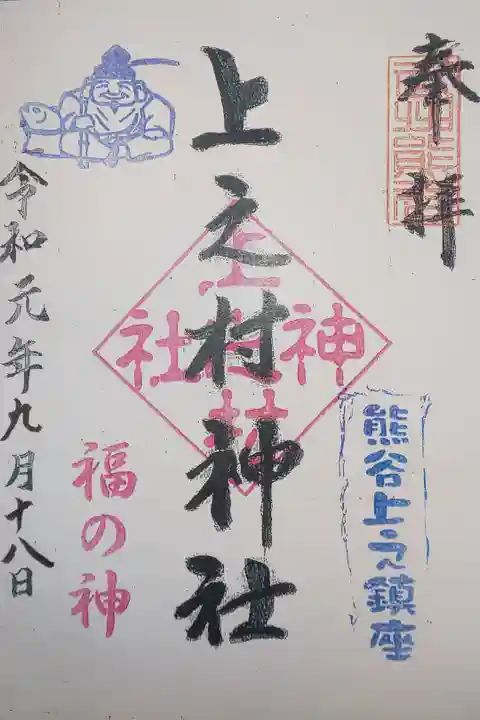 奉拝
熊谷上之鎮座
上之村神社
福の神
令和元年九月十八日